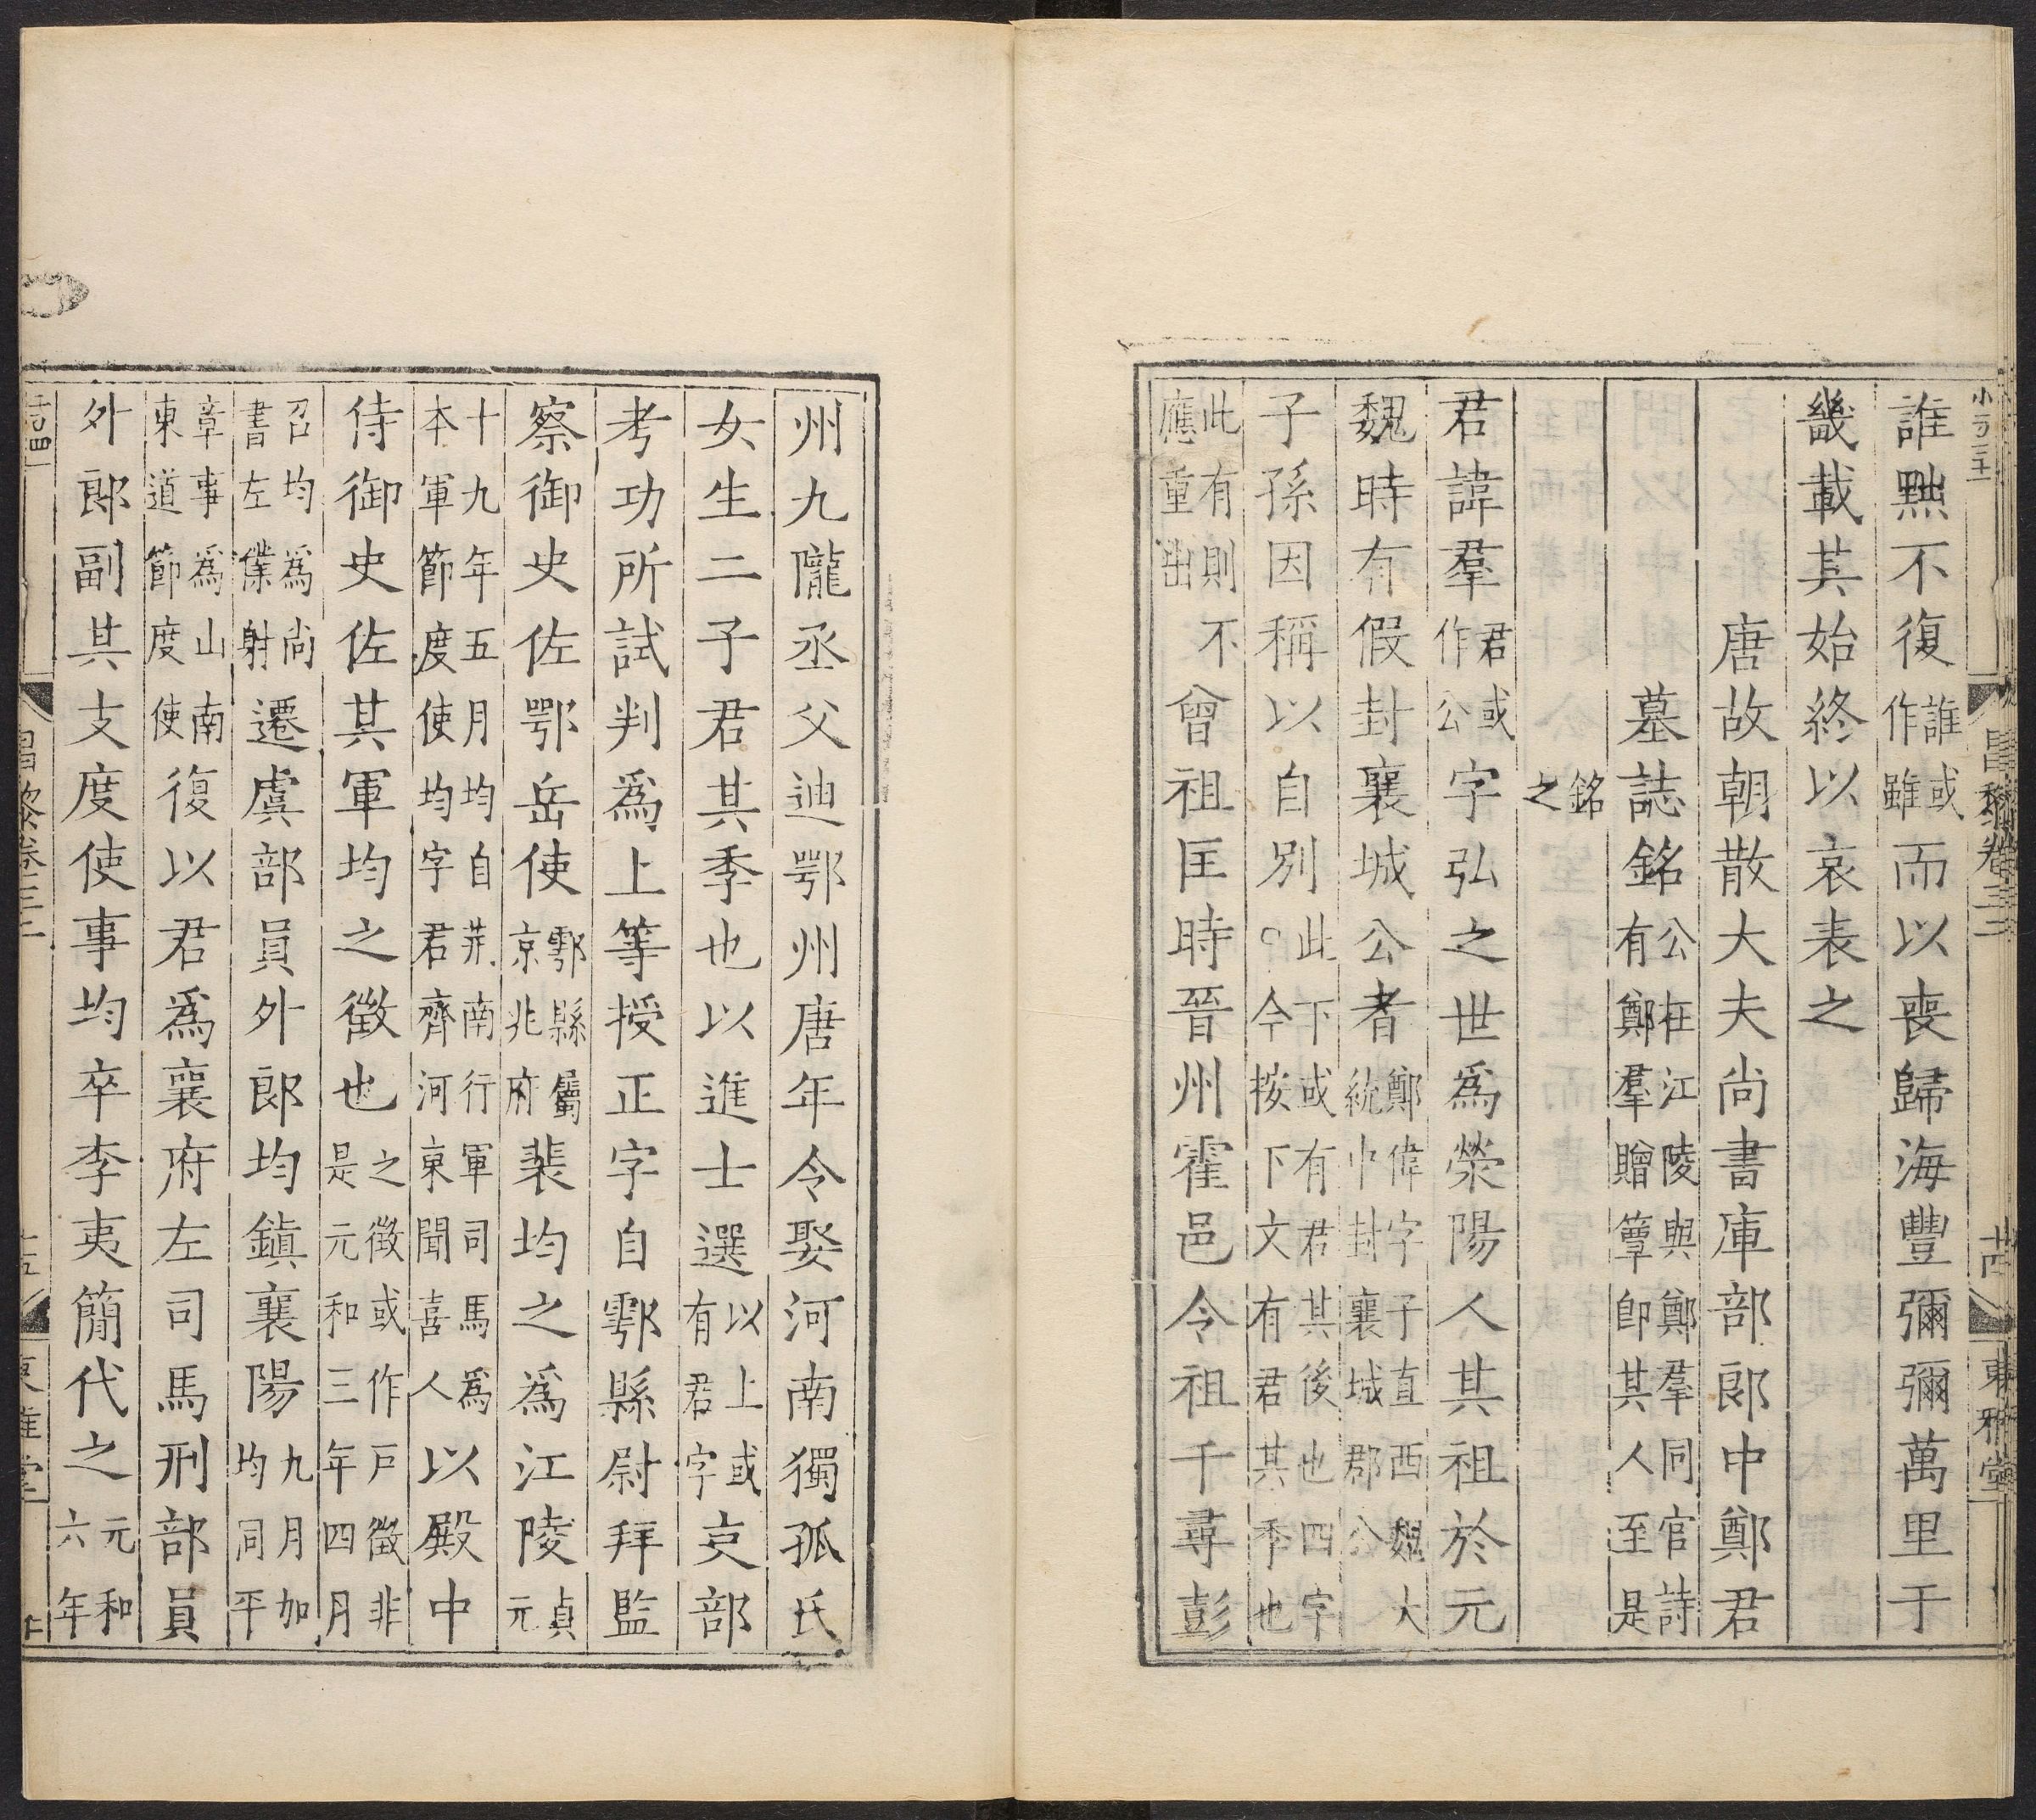 誰黙不復誰或作雖而以喪歸海豐彌彌萬里于
畿載其始終以哀表之
唐故朝散大夫尚書庫部郎中鄭君
墓誌銘公在江陵與鄭羣同官詩有鄭羣贈簟即其人至是
銘之
君諱羣君或作公字弘之世為滎陽人其祖於元
魏時有假封襄城公者鄭偉字子直西魏大統中封襄城郡公
子孫因稱以自別此下或有君其後也四字○今按下文有君其季也
此有則不應重出曾祖匡時晉州霍邑令祖千尋彭
州九隴丞父迪鄂州唐年令娶河南獨孤氏
女生二子君其季也以進士選以上或有君字吏部
考功所試判爲上等授正字自鄠縣尉拜監
察御史佐鄂岳使鄠縣屬京兆府裴均之爲江陵貞元
十九年五月均自荊南行軍司馬爲本軍節度使均字君齊河東聞喜人以殿中
侍御史佐其軍均之徵也之徵或作戸徵非是元和三年四月
召均爲尚書左僕射遷虞部員外郎均鎮襄陽九月加均同平
章事爲山南東道節度使復以君爲襄府左司馬刑部員
外郎副其支度使事均卒李夷簡代之元和六年
昌黎卷三十
東雅堂